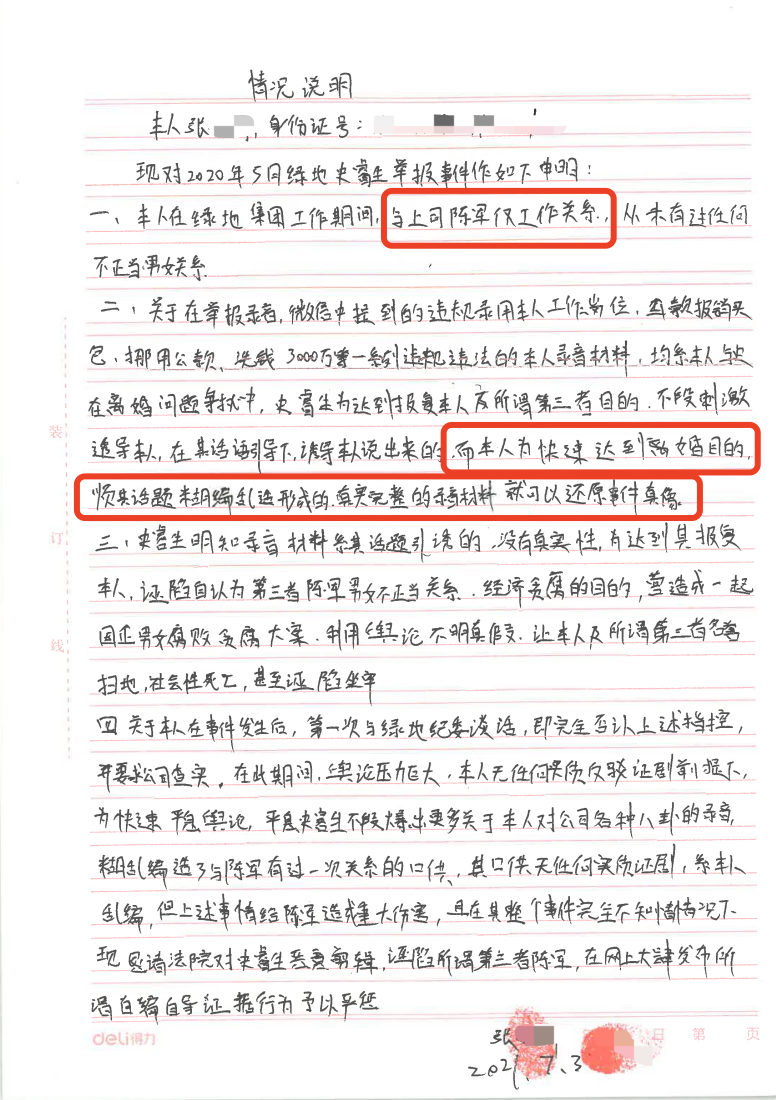 情况说明
本人张 , 身份证号:
现对2020年5月绿地史睿生举报事件作如下申明:
一、本人在绿地集团工作期间,与上司陈军仅工作关系,从未有过任何
不正当男女关系
二、关于在举报录音,微信中提到的违规录用本人工作岗位、公款报销买
包、挪用公款、洗钱3000万等一系列违规违法的本人录音材料,均系本人与史
在离婚问题争执中,史睿生为达到报复本人及所谓第三者目的,不段刺激
诱导本人,在其话语引导下,诱导本人说出来的,而本人为快速达到离婚目的,
顺其话题 胡编乱造形成的,真实完整的录音材料 就可以还原事件真像
三、史睿生明知录音材料系其话题引诱的,没有真实性,为达到其报复
本人,诬陷自认为第三者陈军男女不正当关系、经济贪腐的目的,营造成一起
国企男女腐败贪腐大案,利用舆论不明真假,让本人及所谓第三者名誉
扫地,社会性死亡,甚至诬陷坐牢
四 关于本人在事件发生后,第一次与绿地纪委谈话,即完全否认上述指控,
并要求公司查实。在此期间,舆论压力巨大,本人无任何实质反驳证剧前提下,
为快速平息舆论,平息史睿生不段爆出更多关于本人对公司各种八卦的录音,
糊乱编造了与陈军有过一次关系的口供、其口供无任何实质证剧,系本人
乱编,但上述事情给陈军造成重大伤害,且在其整个事件完全不知情情况下
现恳请法院对史睿生恶意剪辑,诬陷所谓第三者陈军,在网上大肆发布所
谓自编自导证据行为予以严惩
张
2021.7.3
日 第 页
deli得力
装
订
线